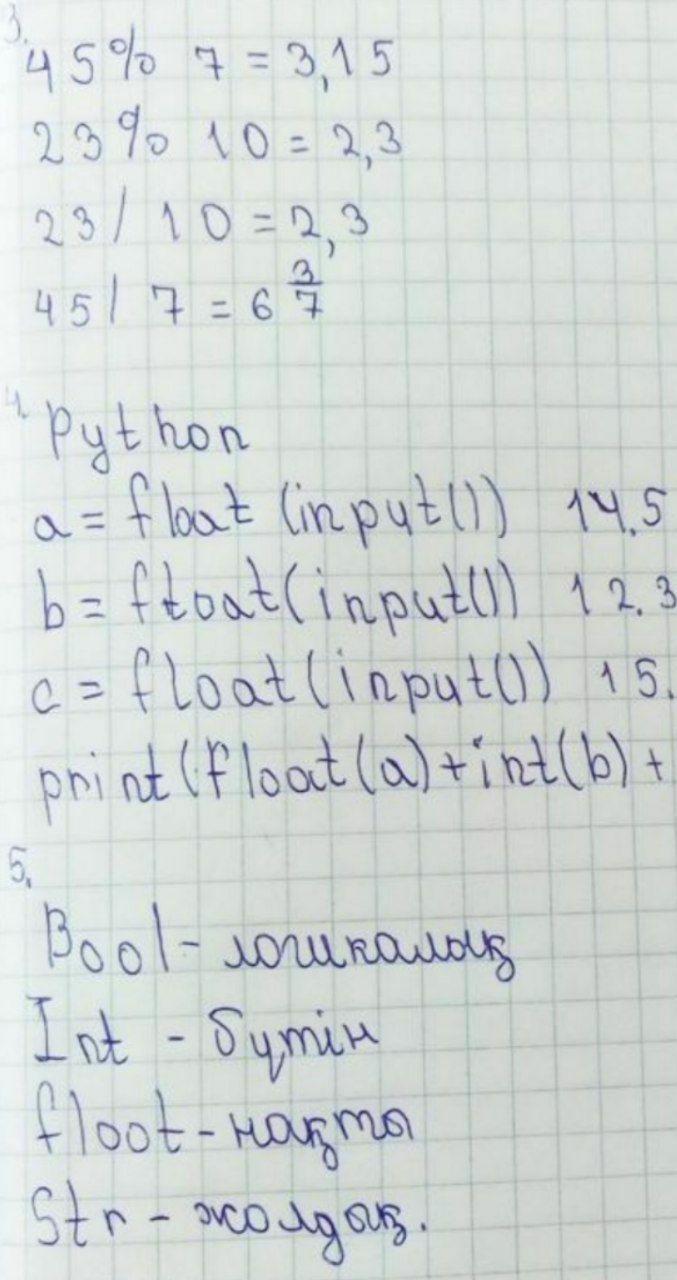 3.
45% 7 = 3,15
23% 10 = 2,3
23/ 10 = 2,3
45/ 7 = 6 3/7
4.
Python
a = float (input()) 14.5
b = float(input()) 12.3
c = float(input()) 15.
print(float(a)+int(b)+
5.
Bool - логикалық
Int - бүтін
floot - нақты
Str - жолдық.